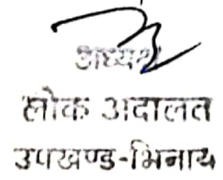 अध्यक्ष
लोक अदालत
उपखण्ड-भिनाय